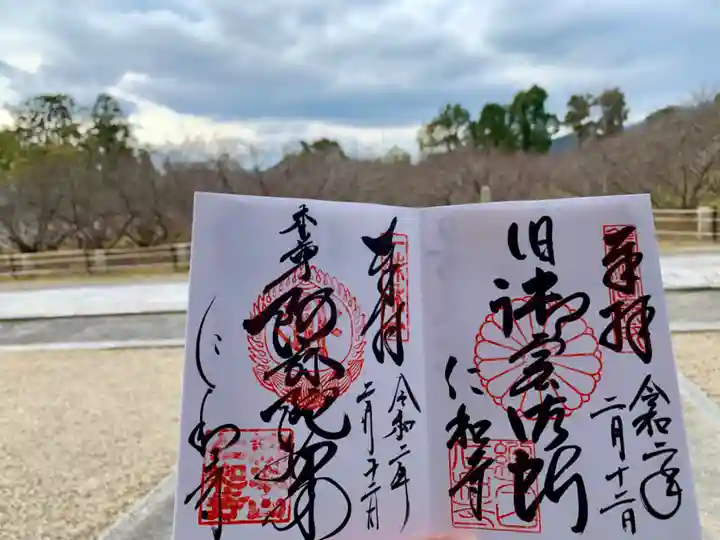 奉拝
令和二年
二月十二日
旧御室御所
仁和寺
奉拝
令和二年
二月十二日
本尊
阿弥陀如来
仁和寺